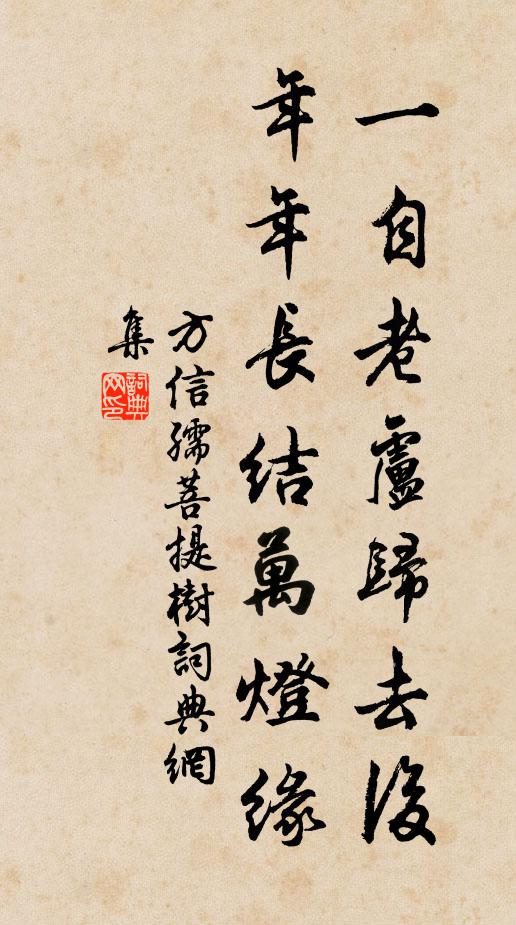 一自老盧歸去後
年年長結萬燈緣
方信孺菩提樹詞典網
集
詞典
网印